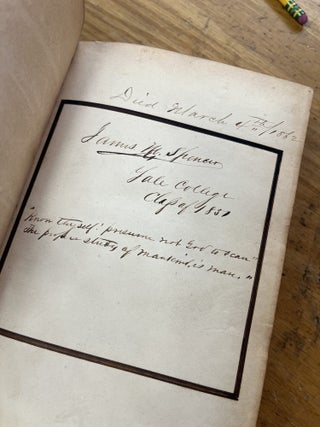 Died March 4th/1862
James M. Spencer
Yale College
Class of 1851
"Know thyself, presume not God to scan"
the proper study of mankind, is man."